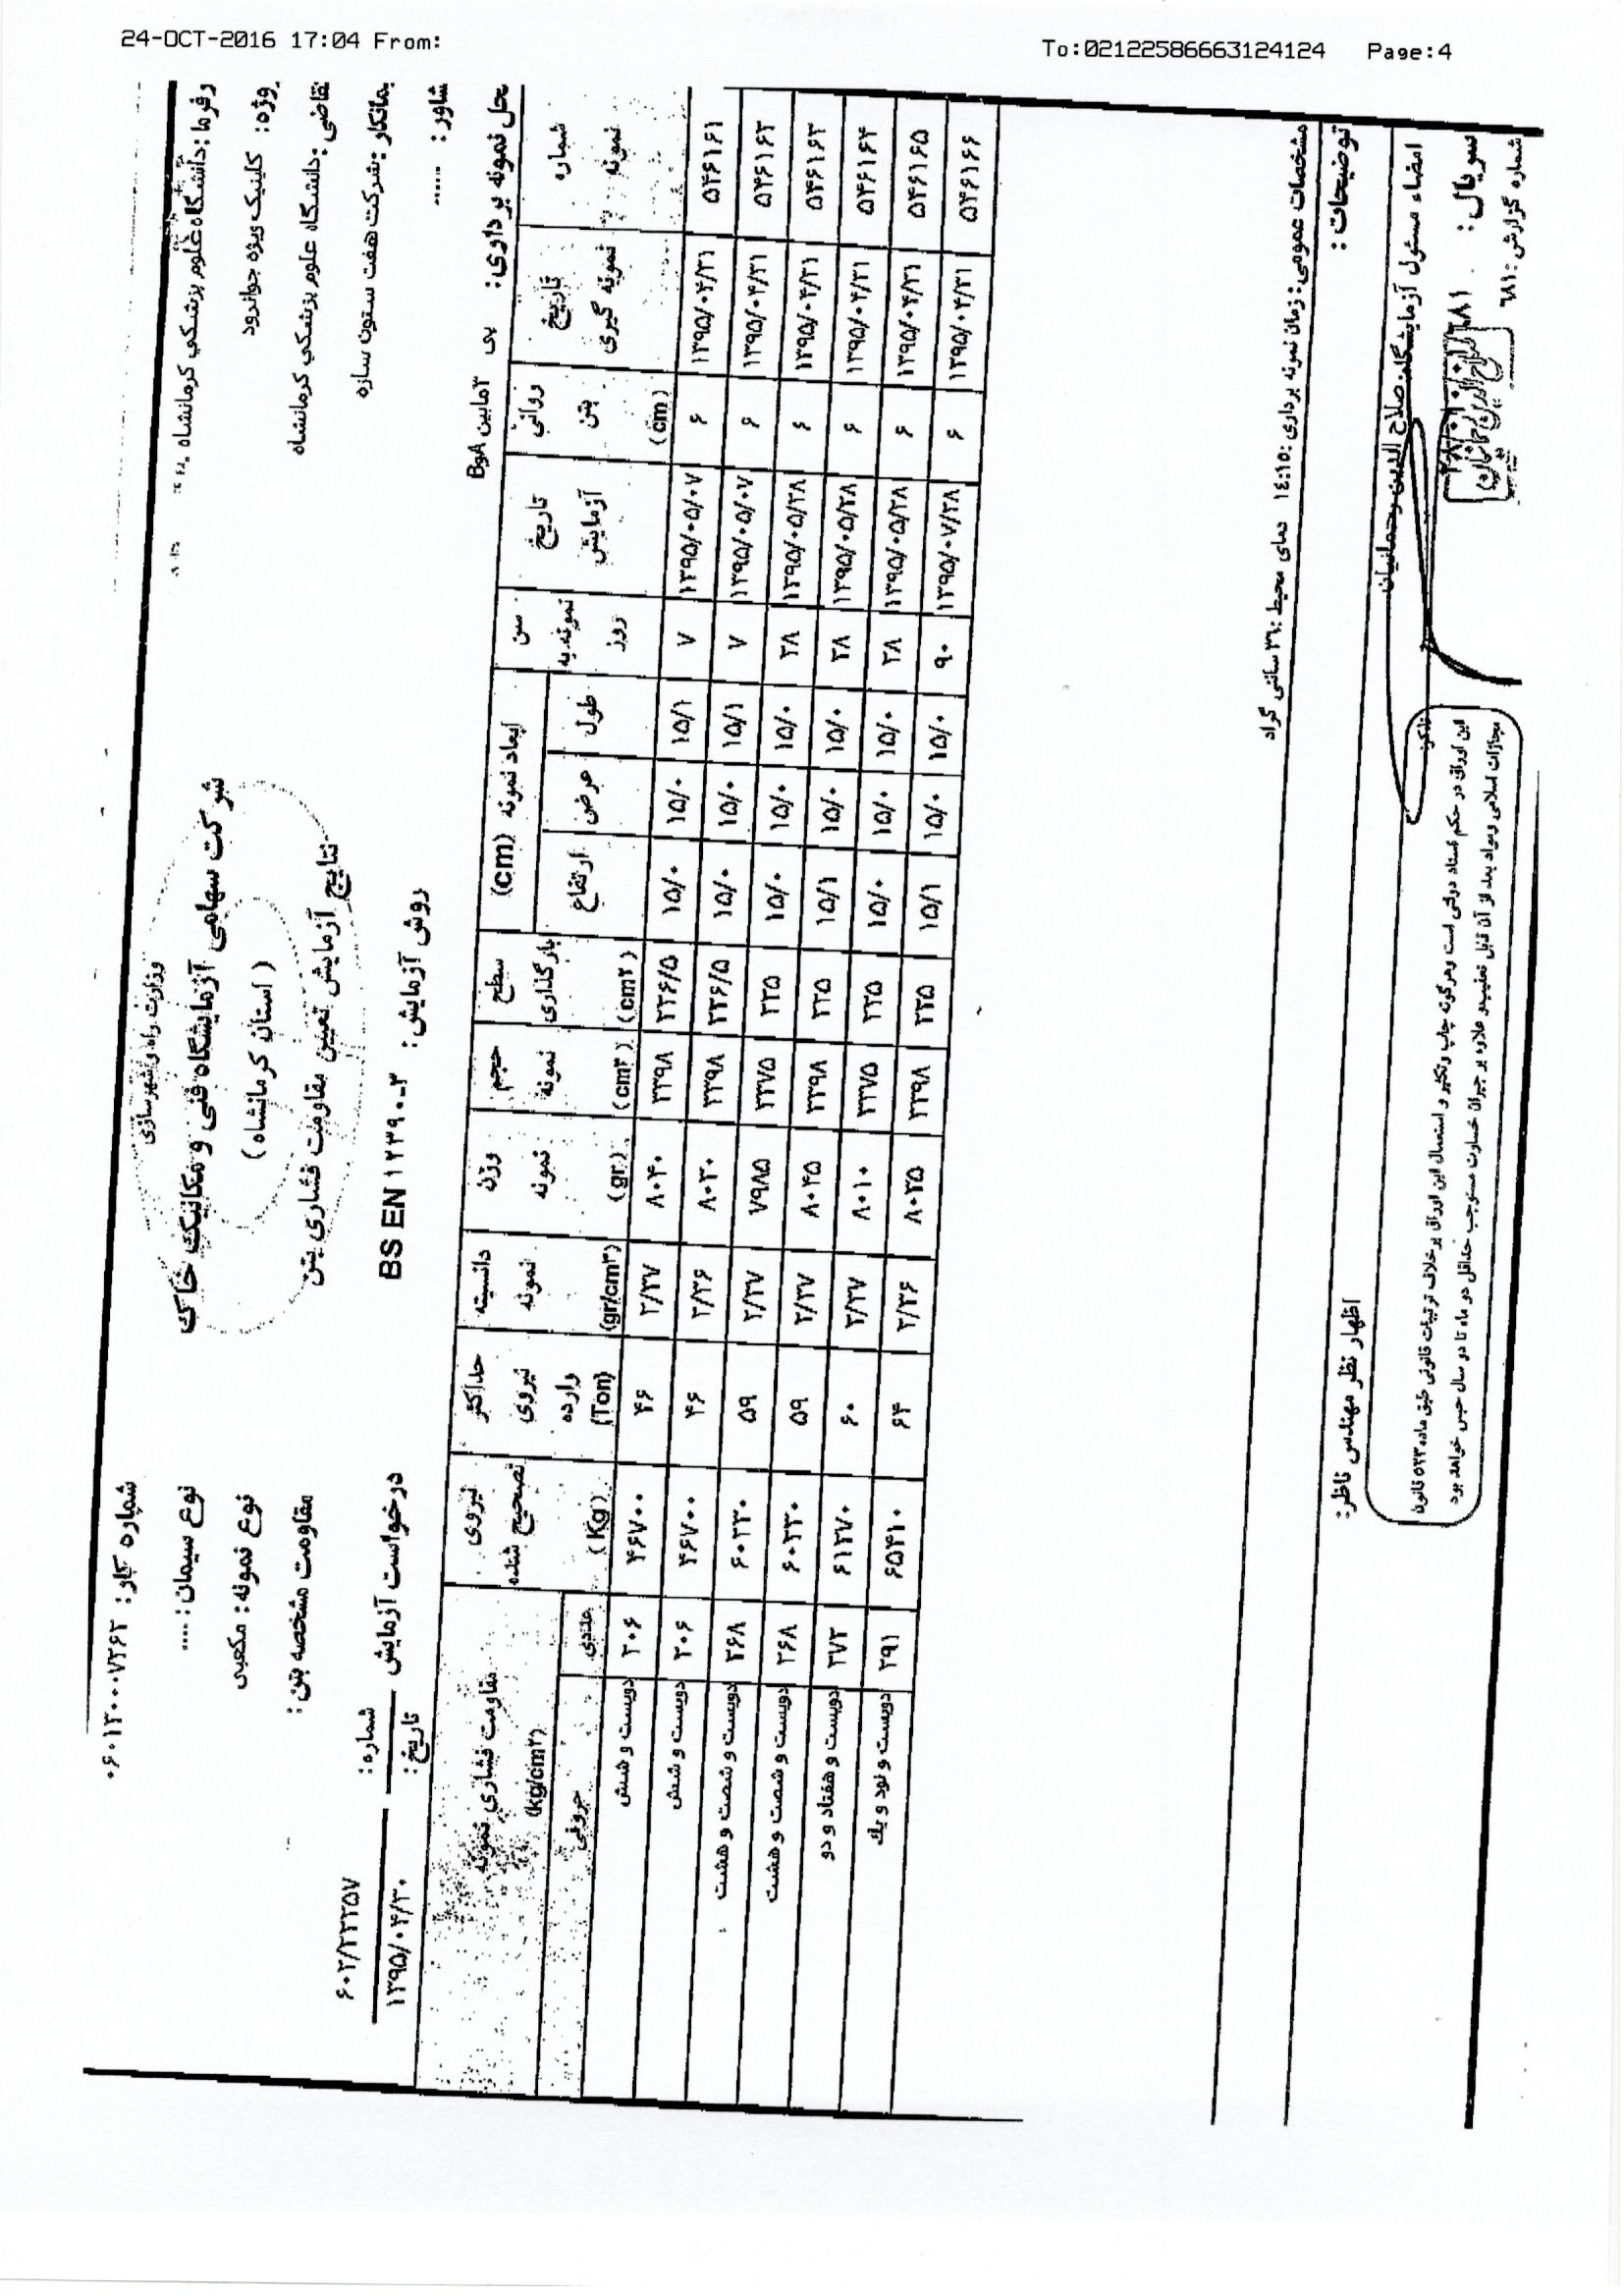 24-OCT-2016 17:04 From:
To:02122586663124124 Page:4
وزارت راه و شهرسازی
شرکت سهامی آزمایشگاه فنی و مکانیک خاک
( استان کرمانشاه )
نتایج آزمایش تعیین مقاومت فشاری بتن
روش آزمایش: BS EN ۱۲۳۹۰-۳
کارفرما :دانشگاه علوم پزشکي کرمانشاه
پروژه: کلینیک ویژه جوانرود
متقاضی :دانشگاه علوم پزشکي کرمانشاه
پیمانکار :شرکت هفت ستون سازه
مشاور : ....
محل نمونه برداری:
شماره کار: ۰۶۰۱۲۰۰۰۷۲۶۲
نوع سیمان: ....
نوع نمونه: مکعبی
مقاومت مشخصه بتن:
درخواست آزمایش
شماره: ۶۰۲/۲۲۲۵۷
تاریخ: ۱۳۹۵/۰۴/۳۰
شماره نمونه | تاریخ نمونه گیری | روانی بتن (cm) | تاریخ آزمایش | سن نمونه به روز | ابعاد نمونه (cm) طول | عرض | ارتفاع | سطح بارگذاری (cm۲) | حجم نمونه (cm۳) | وزن نمونه (gr) | دانسیته نمونه (gr/cm۳) | حداکثر نیروی وارده (Ton) | نیروی تصحیح شده (Kg) | مقاومت فشاری نمونه (kg/cm۲) عددی | حروفی
۵۴۶۱۶۱ ۱۳۹۵/۰۴/۳۱ ۶ ۱۳۹۵/۰۵/۰۷ ۷ ۱۵/۱ ۱۵/۰ ۱۵/۰ ۲۲۶/۵ ۳۳۹۸ ۸۰۴۰ ۲/۳۷ ۴۶ ۴۶۷۰۰ ۲۰۶ دویست و شش
۵۴۶۱۶۲ ۱۳۹۵/۰۴/۳۱ ۶ ۱۳۹۵/۰۵/۰۷ ۷ ۱۵/۱ ۱۵/۰ ۱۵/۰ ۲۲۶/۵ ۳۳۹۸ ۸۰۳۰ ۲/۳۶ ۴۶ ۴۶۷۰۰ ۲۰۶ دویست و شش
۵۴۶۱۶۳ ۱۳۹۵/۰۴/۳۱ ۶ ۱۳۹۵/۰۵/۲۸ ۲۸ ۱۵/۰ ۱۵/۰ ۱۵/۰ ۲۲۵ ۳۳۷۵ ۷۹۸۵ ۲/۳۷ ۵۹ ۶۰۲۳۰ ۲۶۸ دویست و شصت و هشت
۵۴۶۱۶۴ ۱۳۹۵/۰۴/۳۱ ۶ ۱۳۹۵/۰۵/۲۸ ۲۸ ۱۵/۰ ۱۵/۰ ۱۵/۱ ۲۲۵ ۳۳۹۸ ۸۰۴۵ ۲/۳۷ ۵۹ ۶۰۲۳۰ ۲۶۸ دویست و شصت و هشت
۵۴۶۱۶۵ ۱۳۹۵/۰۴/۳۱ ۶ ۱۳۹۵/۰۵/۲۸ ۲۸ ۱۵/۰ ۱۵/۰ ۱۵/۰ ۲۲۵ ۳۳۷۵ ۸۰۱۰ ۲/۳۷ ۶۰ ۶۱۲۷۰ ۲۷۲ دویست و هفتاد و دو
۵۴۶۱۶۶ ۱۳۹۵/۰۴/۳۱ ۶ ۱۳۹۵/۰۷/۲۸ ۹۰ ۱۵/۰ ۱۵/۰ ۱۵/۱ ۲۲۵ ۳۳۹۸ ۸۰۲۵ ۲/۳۶ ۶۴ ۶۵۴۱۰ ۲۹۱ دویست و نود و یك
مشخصات عمومی: زمان نمونه برداری :١٤:١٥ دمای محیط :۳٦ سانتی گراد
توضیحات :
اظهار نظر مهندس ناظر:
امضاء مسئول آزمایشگاه: صلاح الدین رحمانیان
این اوراق در حکم اسناد دولتی است وهرگونه چاپ وتکثیر و استعمال این اوراق بر خلاف ترتیبات قانونی طبق ماده ۵۲۳ قانون
مجازات اسلامی ومواد بعد از آن قابل تعقیب و علاوه بر جبران خسارت مستوجب حداقل دو ماه تا دو سال حبس خواهد بود
سریال :
شماره گزارش :٦٨١